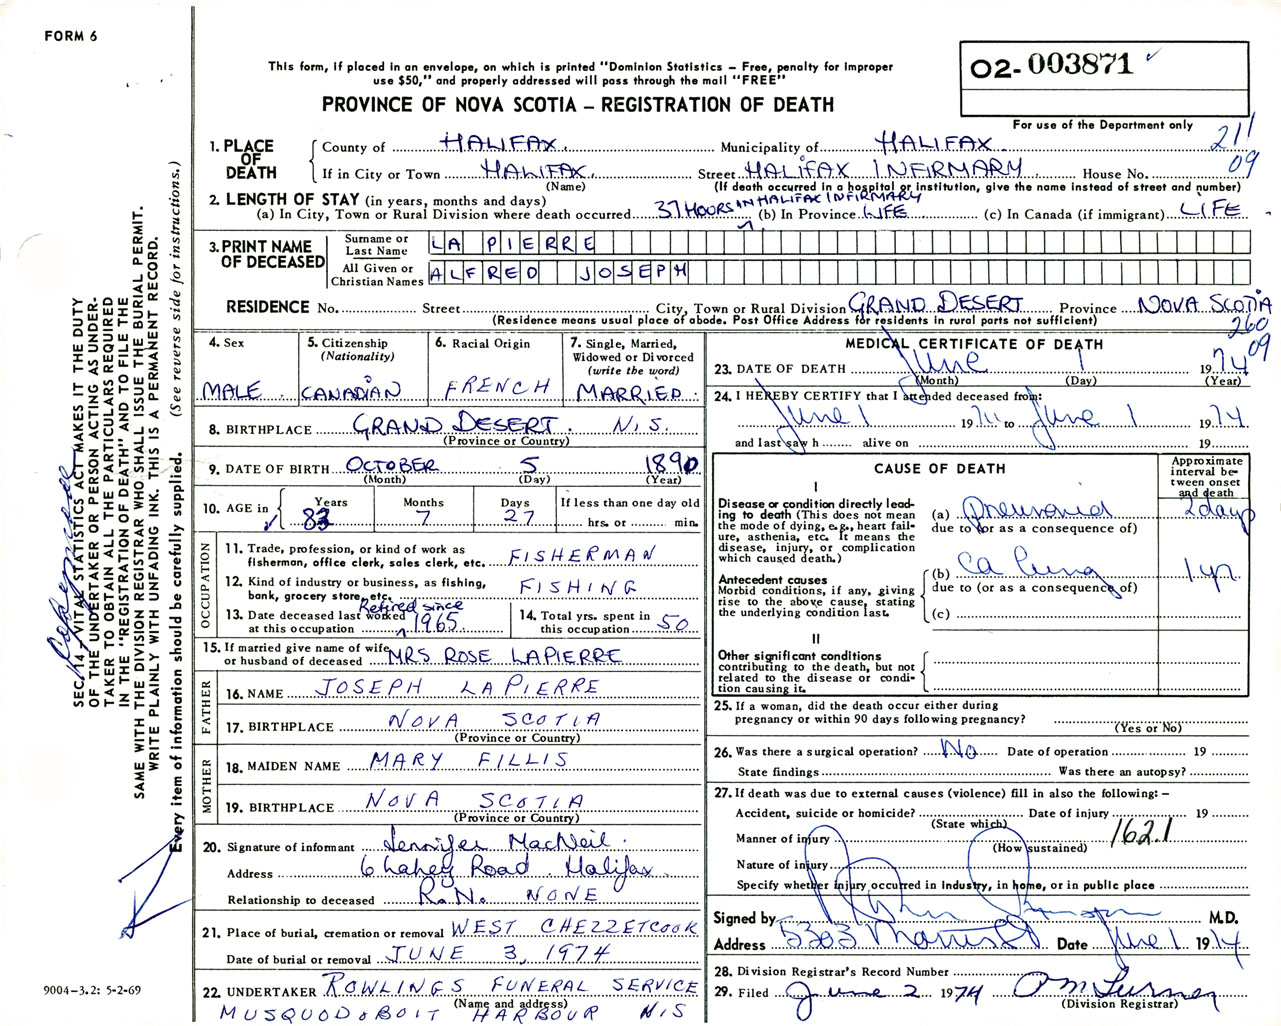 FORM 6
This form, if placed in an envelope, on which is printed "Dominion Statistics – Free, penalty for improper
use $50," and properly addressed will pass through the mail "FREE"
PROVINCE OF NOVA SCOTIA – REGISTRATION OF DEATH
02-003871
For use of the Department only
211
09
1. PLACE OF DEATH
County of HALIFAX Municipality of HALIFAX
If in City or Town HALIFAX Street HALIFAX INFIRMARY House No.
(Name) (If death occurred in a hospital or institution, give the name instead of street and number)
2. LENGTH OF STAY (in years, months and days)
(a) In City, Town or Rural Division where death occurred 37 HOURS IN HALIFAX INFIRMARY (b) In Province LIFE (c) In Canada (if immigrant) LIFE
3. PRINT NAME OF DECEASED
Surname or Last Name LA PIERRE
All Given or Christian Names ALFRED JOSEPH
RESIDENCE No. Street City, Town or Rural Division GRAND DESERT Province NOVA SCOTIA
(Residence means usual place of abode. Post Office Address for residents in rural parts not sufficient)
260
09
4. Sex MALE
5. Citizenship (Nationality) CANADIAN
6. Racial Origin FRENCH
7. Single, Married, Widowed or Divorced (write the word) MARRIED
8. BIRTHPLACE GRAND DESERT N.S.
(Province or Country)
9. DATE OF BIRTH OCTOBER 5 1890
(Month) (Day) (Year)
10. AGE in Years 83 Months 7 Days 27 If less than one day old hrs. or min.
OCCUPATION
11. Trade, profession, or kind of work as
fisherman, office clerk, sales clerk, etc. FISHERMAN
12. Kind of industry or business, as fishing,
bank, grocery store, etc. FISHING
13. Date deceased last worked
at this occupation Retired since 1965
14. Total yrs. spent in
this occupation 50
15. If married give name of wife
or husband of deceased MRS ROSE LAPIERRE
FATHER
16. NAME JOSEPH LAPIERRE
17. BIRTHPLACE NOVA SCOTIA
(Province or Country)
MOTHER
18. MAIDEN NAME MARY FILLIS
19. BIRTHPLACE NOVA SCOTIA
(Province or Country)
20. Signature of informant Jennifer MacNeil
Address 6 Lahey Road Halifax
Relationship to deceased R.N. NONE
21. Place of burial, cremation or removal WEST CHEZZETCOOK
Date of burial or removal JUNE 3, 1974
22. UNDERTAKER ROWLINGS FUNERAL SERVICE
(Name and address)
MUSQUODOBOIT HARBOUR N.S
MEDICAL CERTIFICATE OF DEATH
23. DATE OF DEATH June 1 1974
(Month) (Day) (Year)
24. I HEREBY CERTIFY that I attended deceased from:
June 1 1974 to June 1 1974
and last saw h alive on 19
CAUSE OF DEATH
Approximate interval between onset and death
I
Disease or condition directly leading to death (This does not mean the mode of dying, e.g., heart failure, asthenia, etc. It means the disease, injury, or complication which caused death.)
(a) Pneumonia 2 days
due to (or as a consequence of)
Antecedent causes
Morbid conditions, if any, giving rise to the above cause, stating the underlying condition last.
(b) Ca Lung 1 yr
due to (or as a consequence of)
(c)
II
Other significant conditions
contributing to the death, but not related to the disease or condition causing it.
25. If a woman, did the death occur either during
pregnancy or within 90 days following pregnancy?
(Yes or No)
26. Was there a surgical operation? No Date of operation 19
State findings Was there an autopsy?
27. If death was due to external causes (violence) fill in also the following: –
Accident, suicide or homicide? Date of injury 19
(State which)
Manner of injury 162.1
(How sustained)
Nature of injury
Specify whether injury occurred in industry, in home, or in public place
Signed by M.D.
Address 5303 Morris St. Date June 1 1974
28. Division Registrar's Record Number
29. Filed June 2 1974 M Turner
(Division Registrar)
SEC. 14 – VITAL STATISTICS ACT MAKES IT THE DUTY
OF THE UNDERTAKER OR PERSON ACTING AS UNDER-
TAKER TO OBTAIN ALL THE PARTICULARS REQUIRED
IN THE "REGISTRATION OF DEATH" AND TO FILE THE
SAME WITH THE DIVISION REGISTRAR WHO SHALL ISSUE THE BURIAL PERMIT.
WRITE PLAINLY WITH UNFADING INK. THIS IS A PERMANENT RECORD.
Every item of information should be carefully supplied. (See reverse side for instructions.)
9004-3.2: 5-2-69